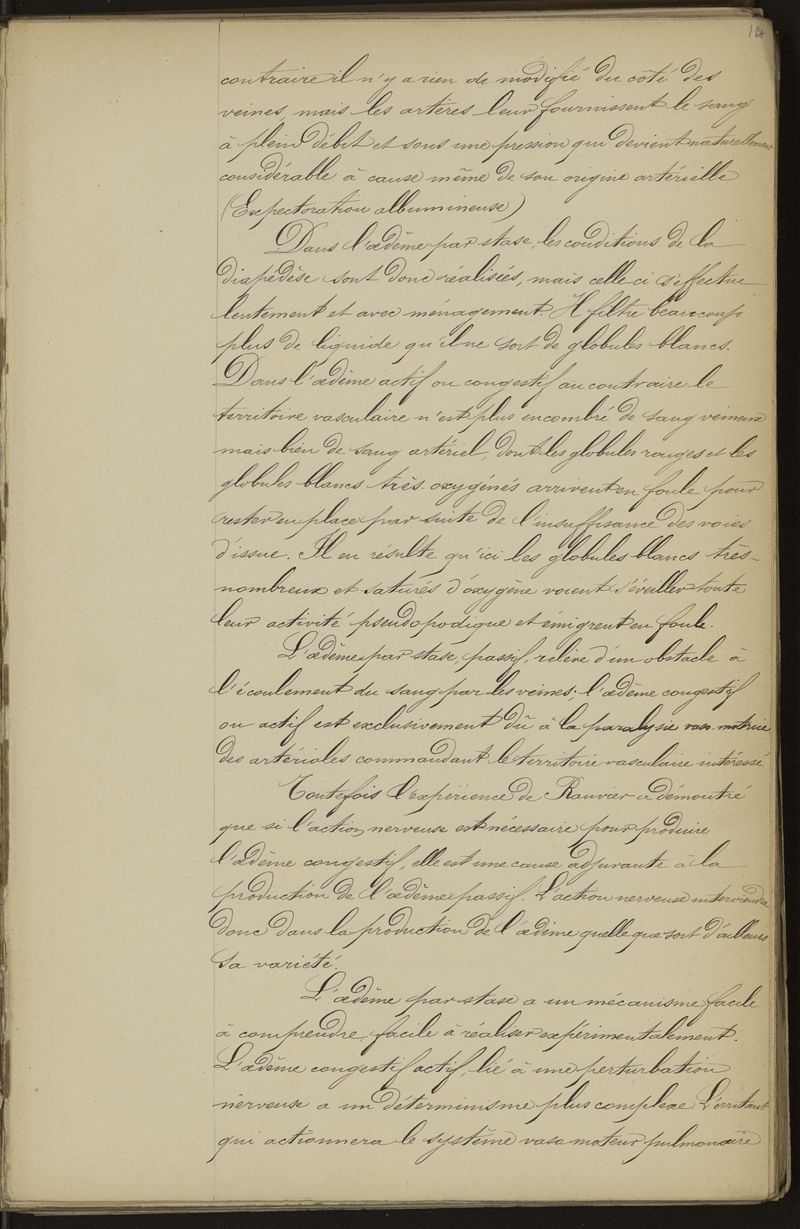 14
contraire il n'y a rien de modifié du côté des
veines, mais les artères leur fournissent le sang
à plein débit et sous une pression qui devient naturellement
considérable à cause même de son origine artérielle
(Expectoration albumineuse)
Dans l'œdême par stase, les conditions de la
diapédèse sont donc réalisées, mais celle ci s'effectue
lentement et avec ménagement. Il filtre beaucoup
plus de liquide qu'il ne sort de globules blancs.
Dans l'œdême actif ou congestif au contraire le
territoire vasculaire n'est plus encombré de sang veineux
mais bien de sang artériel, dont les globules rouges et les
globules blancs très oxygénés arrivent en foule pour
rester en place par suite de l'insuffisance des voies
d'issue. Il en résulte qu'ici les globules blancs très-
nombreux et saturés d'oxygène voient s'éveiller toute
leur activité pseudopodique et émigrent en foule.
L'œdême par stase, passif, relève d'un obstacle à
l'écoulement du sang par les veines; l'œdême congestif
ou actif est exclusivement dû à la paralysie vaso-motrice
des artérioles commandant le territoire vasculaire intéressé
Toutefois l'expérience de Ranvier a démontré
que si l'action nerveuse est nécessaire pour produire
l'œdême congestif, elle est une cause adjuvante à la
production de l'œdême passif. L'action nerveuse interviendra
donc dans la production de l'œdême quelle que soit d'ailleurs
sa variété.
L'œdême par stase a un mécanisme facile
à comprendre, facile à réaliser expérimentalement.
L'œdême congestif actif, lié à une perturbation
nerveuse a un déterminisme plus complexe L'irritant
qui actionnera le système vaso moteur pulmonaire